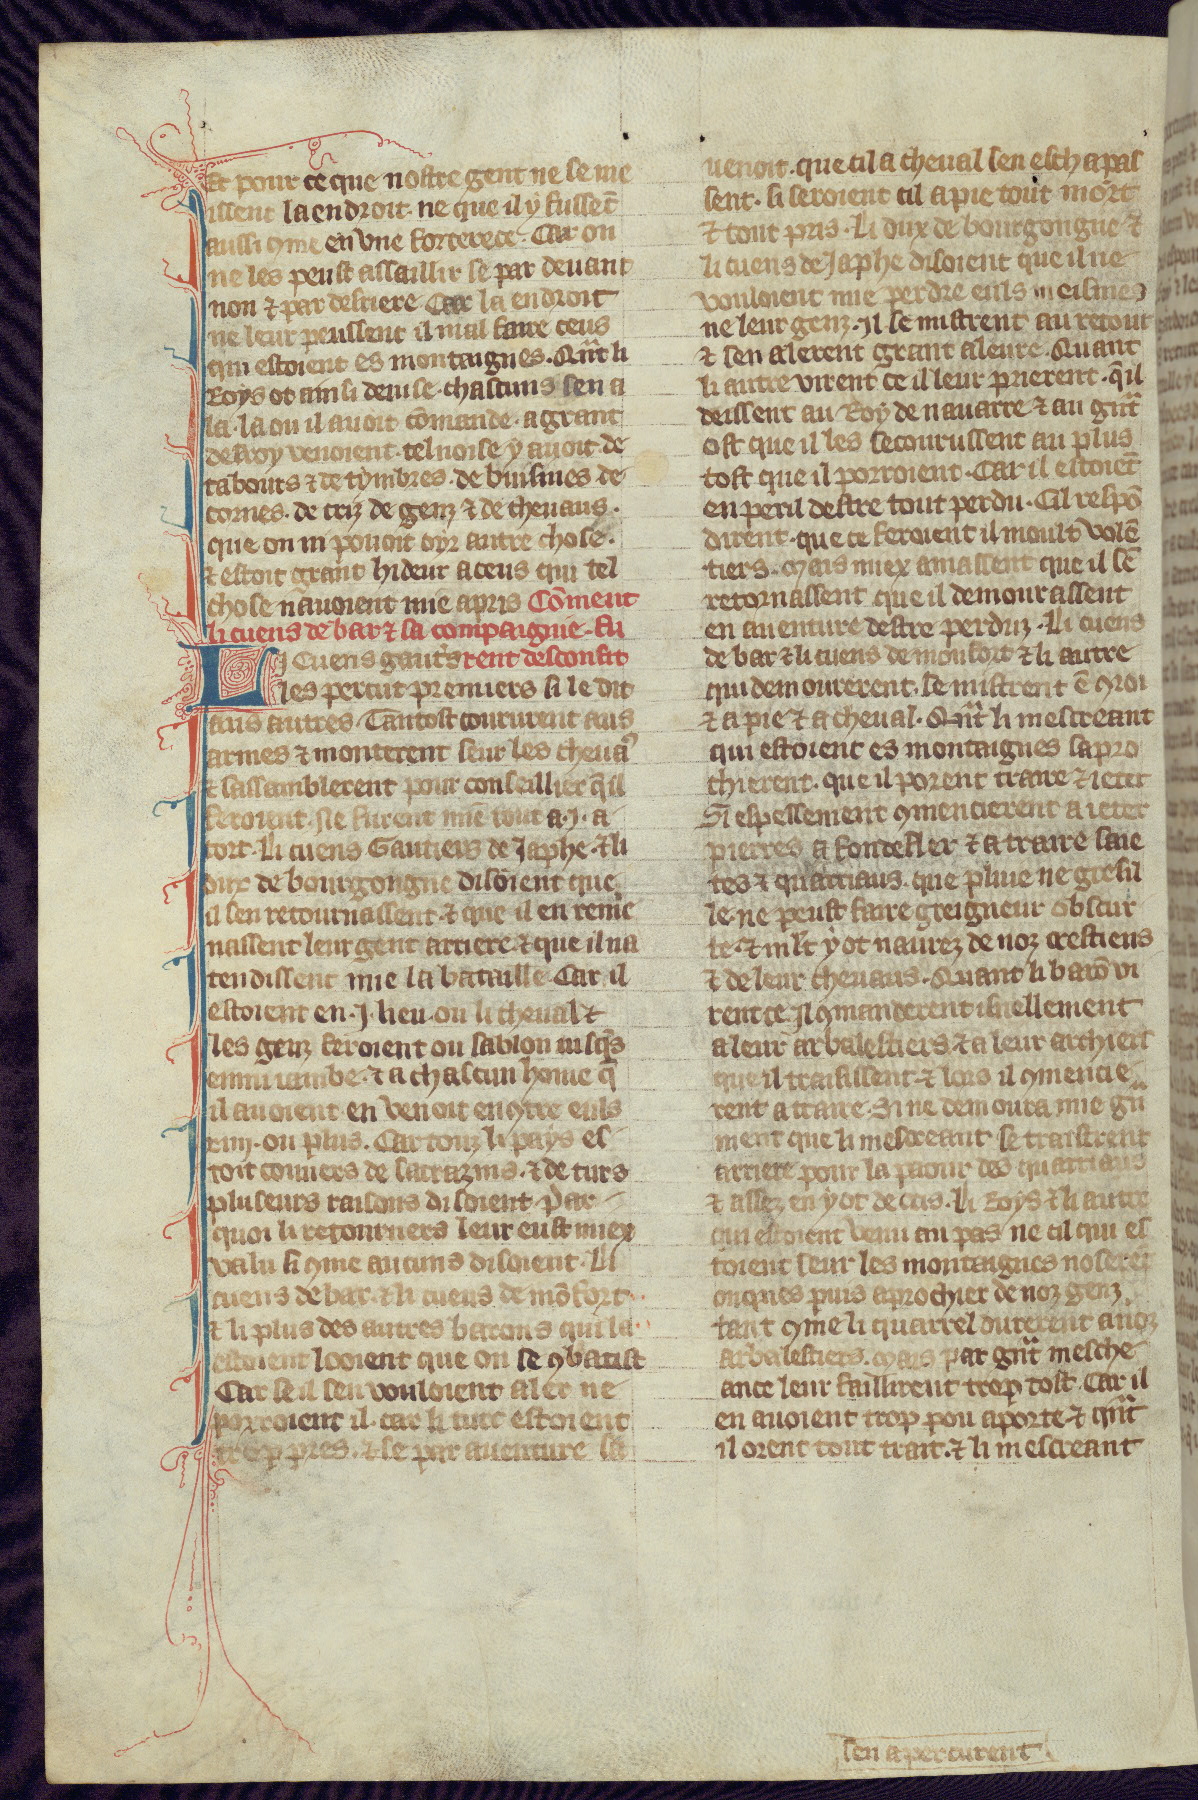 Et pour ce que nostre gent ne se me
issent la endroit. ne que il y fussēt
aussi ꝯme en vne forterece. Car on
ne les peust assaillir se par deuant
non ⁊ par derriere Car la endroit
ne leur peussent il mal faire ceus
qui estoient es montaignes. Qn̄t li
Roys ot ainsi deuise. chascuns sen a
la. la ou il auoit cōmande. a grant
desroy venoient. tel noise y auoit de
tabours ⁊ de tymbres. de buisines de
cornes. de criz de genz ⁊ de cheuaus.
que on ni pouoit oyr autre chose.
⁊ estoit grant hideur a ceus qui tel
chose nauoient mie apris Cōment
li cuens de bar ⁊ sa compaignie. fu
Li Cuens gaut's rent desconfit
les percut premiers si le dit
aus autres. Tantost coururent aus
armes ⁊ monterent seur les cheua'
⁊ sassamblerent pour conseillier q̄ il
feroient. Ne furent mie tout a .j. a
cort. Li cuens Gautiers de Japhe. ⁊ li
dux de bourgongne disoient que
il sen retournassent. ⁊ que il en reme
nassent leur gent arriere. ⁊ que il na
tendissent mie la bataille. Car il
estoient en .j. lieu. ou li cheual ⁊
les genz feroient ou sablon iusq̄s
enmi iambe. ⁊ a chascun home q̄
il auoient en venoit encontre euls
xiiij. ou plus. Car touz li pays es
toit couuers de sarrazins. ⁊ de turs
pluseurs raisons disoient. par
quoi li retourners leur eust miex
valu si ꝯme aucuns disoient. Li
cuens de bar. ⁊ li cuens de mōfort.
⁊ li plus des autres barons qui la
estoient looient que on se ꝯbatist
Car se il sen vouloient aler ne
porroient il. car li turc estoient
trop pres. ⁊ se par auenture la
uenoit. que cil a cheual sen eschapas
sent. si seroient cil a pie tout mort
⁊ tout pris. Li dux de bourgongne ⁊
li cuens de Japhe disoient que il ne
vouloient mie perdre euls meismes
ne leur genz. Jl se mistrent au retour
⁊ sen alerent grant aleure. Quant
li autre virent ce il leur prierent. q̄ il
deissent au Roy de nauarre ⁊ au gn̄t
ost que il les secourussent au plus
tost que il porroient. Car il estoiēt
en peril destre tout perdu. Cil respō
dirent. que ce feroient il moult volē
tiers. Mais miex amassent que il sē
retornassent que il demourassent
en auenture destre perduz. Li cuens
de bar ⁊ li cuens de monfort ⁊ li autre
qui demourerent. se mistrent ē ꝯroi
⁊ a pie ⁊ a cheual. Qn̄t li mescreant
qui estoient es montaignes sapro
chierent. que il porent traire ⁊ ieter
Si espessement ꝯmencierent a ieter
pierres a fondesler ⁊ a traire saie
tes ⁊ quarriaus. que pluie ne gresil
le. ne peust faire greigneur obscur
te. ⁊ ml't y ot naurez de noz crestiens
⁊ de leur cheuaus. Quant li barō vi
rent ce. Jl ꝯmanderent isnellement
a leur arbalestiers. ⁊ a leur archiers
que il traisissent. ⁊ lors il ꝯmencie
rent a traire. Si ne demoura mie gn̄
ment que li mescreant se traistrent
arriere pour la paour des quarriaus
⁊ assez en y ot de ocis. Li Roys ⁊ li autre
qui estoient venu au pas ne cil qui es
toient seur les montaignes noserēt
onques puis aprochier de noz genz.
tant ꝯme li quarrel durerent a noz
arbalestiers. Mais par gn̄t mesche
ance leur faillirent trop tost. Car il
en auoient trop pou aporte. ⁊ qn̄t
il orent tout trait. ⁊ li mescreant
sen apercurent.